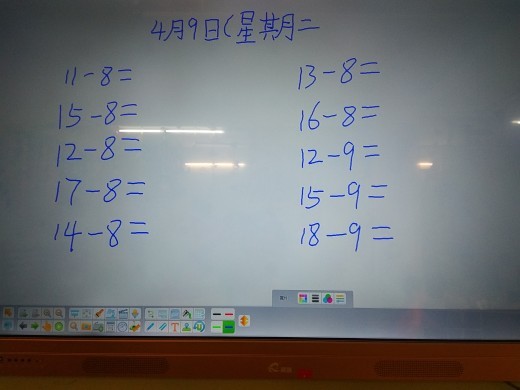 4月9日(星期二
11-8=
15-8=
12-8=
17-8=
14-8=
13-8=
16-8=
12-9=
15-9=
18-9=